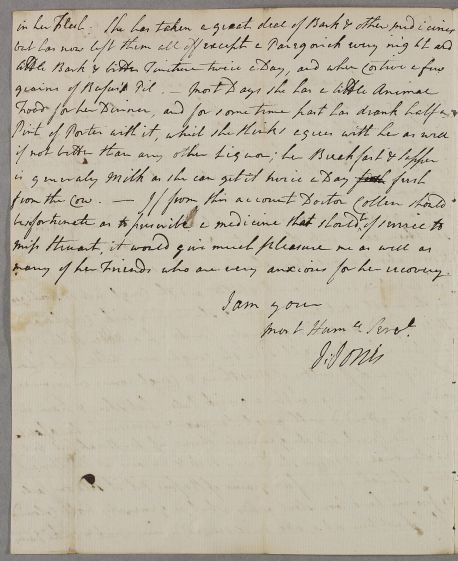 in her flesh. She has taken a great deal of Bark & other medicines
but has now left them all off except a Paregorick every night and
little Bark & bitter Tincture twice a Day, and when costive a few
grains of Rufus's Pil. — Most Days she has a little Animal
Food for her Dinner, and for some time past has drank half a
Pint of Porter with it, which she thinks agrees with her as well
if not better than any other Liquor; her Breakfast & Supper
is generaly Milk as she can get it twice a Day fresh
from the Cow. — If from this account Doctor Collen should
be fortunate as to priscribe a medicine that should be of service to
Miss Stewart, it would give much pleasure me as well as
many of her Friends who are very anxious for her recovery.
I am your
most Hum.le Serv.t
J: Jones